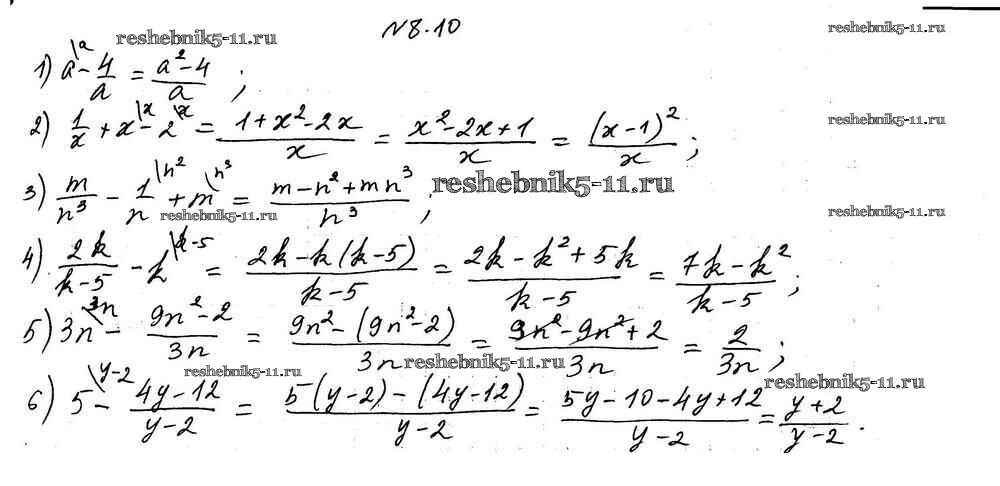 №8.10
reshebnik5-11.ru reshebnik5-11.ru
1) a\a - 4/a = (a²-4)/a ;
2) 1/x + x\x - 2\x = (1+x²-2x)/x = (x²-2x+1)/x = (x-1)²/x ; reshebnik5-11.ru
3) m/n³ - 1/n\n² + m\n³ = (m-n²+mn³)/n³ ; reshebnik5-11.ru
reshebnik5-11.ru reshebnik5-11.ru
4) 2k/(k-5) - k\k-5 = (2k-k(k-5))/(k-5) = (2k-k²+5k)/(k-5) = (7k-k²)/(k-5) ;
5) 3n\3n - (9n²-2)/3n = (9n²-(9n²-2))/3n = (9n²-9n²+2)/3n = 2/3n ;
reshebnik5-11.ru reshebnik5-11.ru reshebnik5-11.ru
6) 5\y-2 - (4y-12)/(y-2) = (5(y-2)-(4y-12))/(y-2) = (5y-10-4y+12)/(y-2) = (y+2)/(y-2) .
reshebnik5-11.ru reshebnik5-11.ru